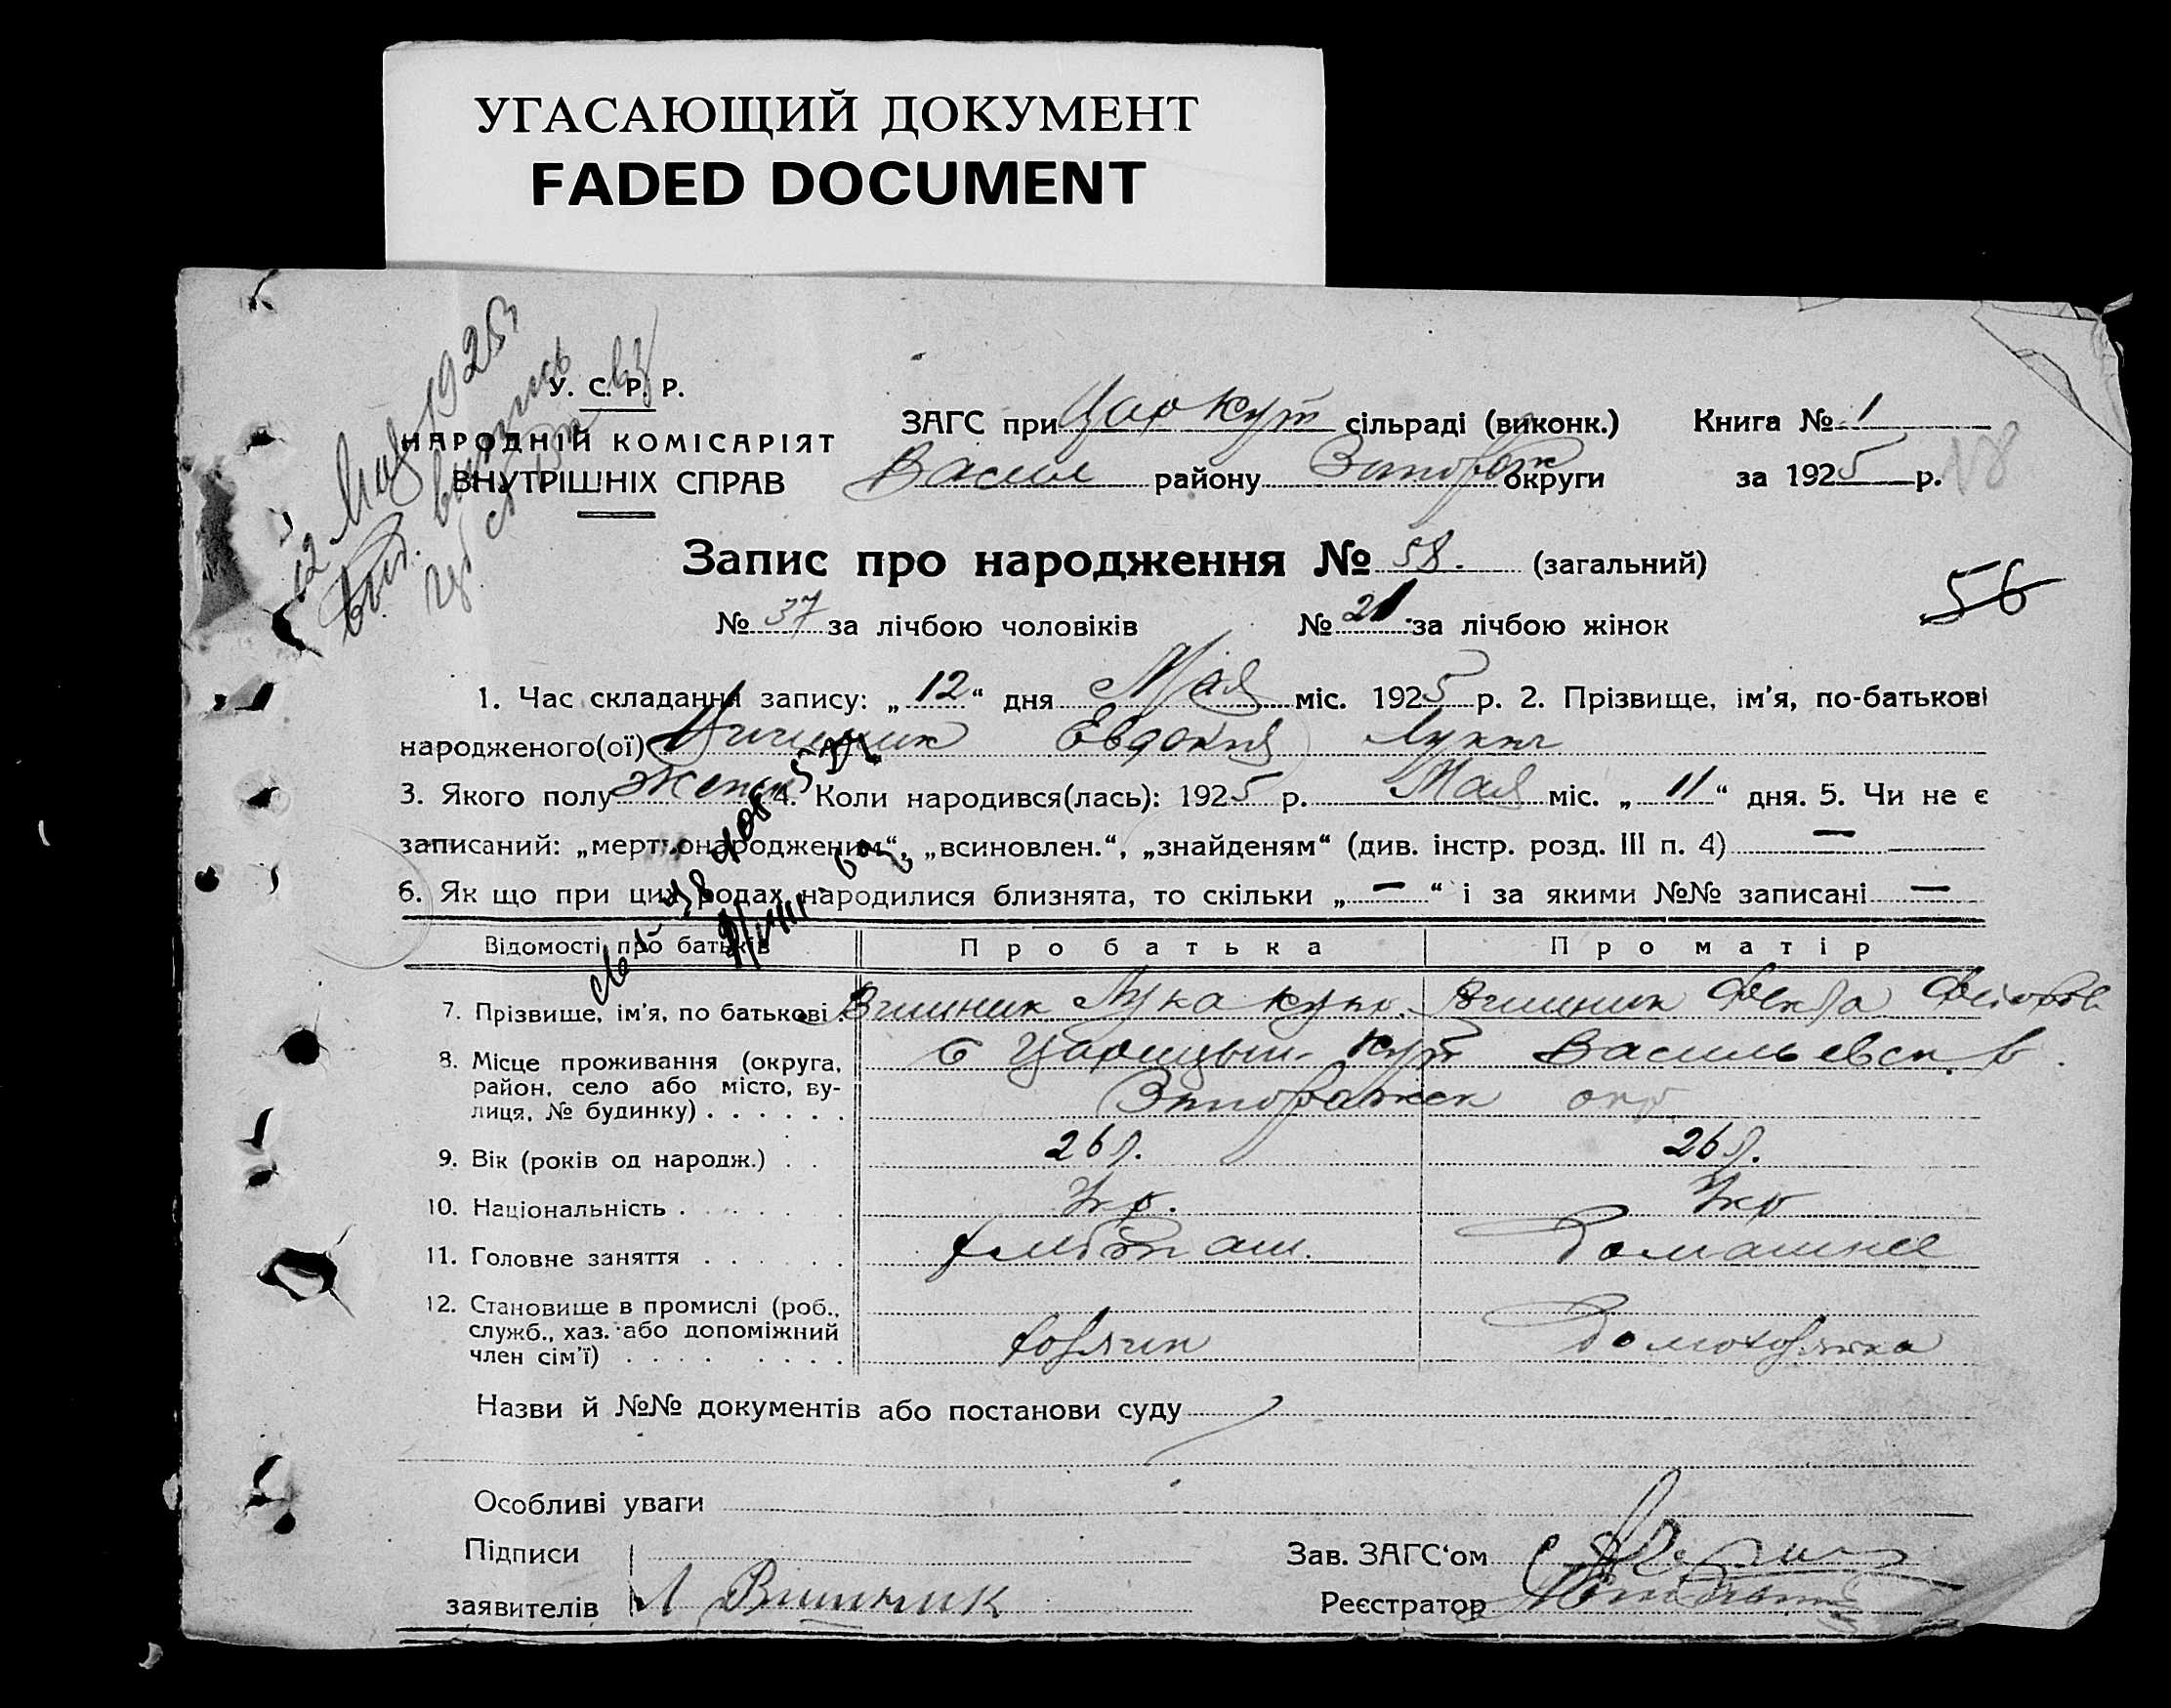 УГАСАЮЩИЙ ДОКУМЕНТ
FADED DOCUMENT
12 Мая 1925
У. С. Р. Р.
НАРОДНІЙ КОМІСАРІЯТ
ВНУТРІШНІХ СПРАВ
ЗАГС при Цар Кут сільраді (виконк.) Книга № 1
Васил району Запорож округи за 1925 р.
Запис про народження № 58. (загальний)
56
№ 37 за лічбою чоловіків № 21 за лічбою жінок
1. Час складання запису: „12“ дня Мая міс. 1925 р. 2. Прізвище, ім'я, по-батькові
народженого(ої) Евдокия Лукич
3. Якого полу Женск 4. Коли народився(лась): 1925 р. Мая міс. „11“ дня. 5. Чи не є
записаний: „мертвонародженим“, „всиновлен.“, „знайденям“ (див. інстр. розд. III п. 4) —
6. Як що при цих родах народилися близнята, то скільки „—“ і за якими №№ записані —
Відомості про батьків Про батька Про матір
7. Прізвище, ім'я, по батькові Вишник Лука Вишник Фекла
8. Місце проживання (округа, с Царицын- Кут Васильевск. р.
район, село або місто, ву-
лиця, № будинку) Запорожск окр
9. Вік (років од народж.) 26 л. 26 л.
10. Національність Укр. Укр
11. Головне заняття хлебопаш. Домашнее
12. Становище в промислі (роб.,
служб., хаз. або допоміжний
член сім'ї) хозяин домохозяйка
Назви й №№ документів або постанови суду
Особливі уваги
Підписи Зав. ЗАГС'ом
заявителів Л Вишник Реєстратор